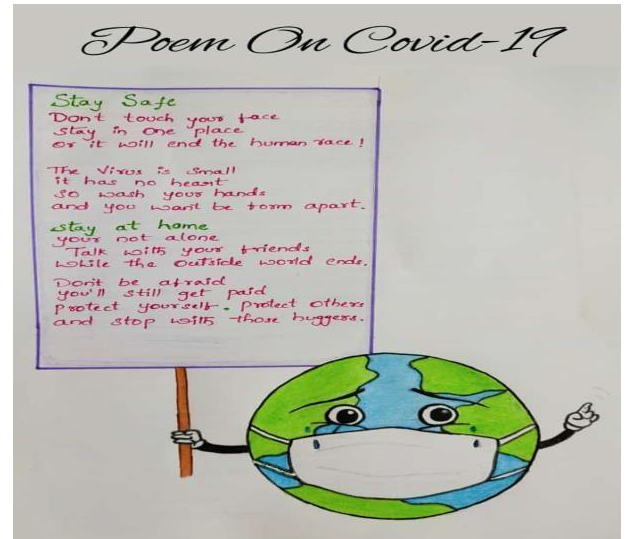 Poem On Covid-19
Stay Safe
Don't touch your face
stay in one place
or it will end the human race!
The Virus is small
it has no heart
so wash your hands
and you won't be torn apart.
stay at home
your not alone
Talk with your friends
while the outside world ends.
Don't be afraid
you'll still get paid
protect yourself. protect others
and stop with those huggers.